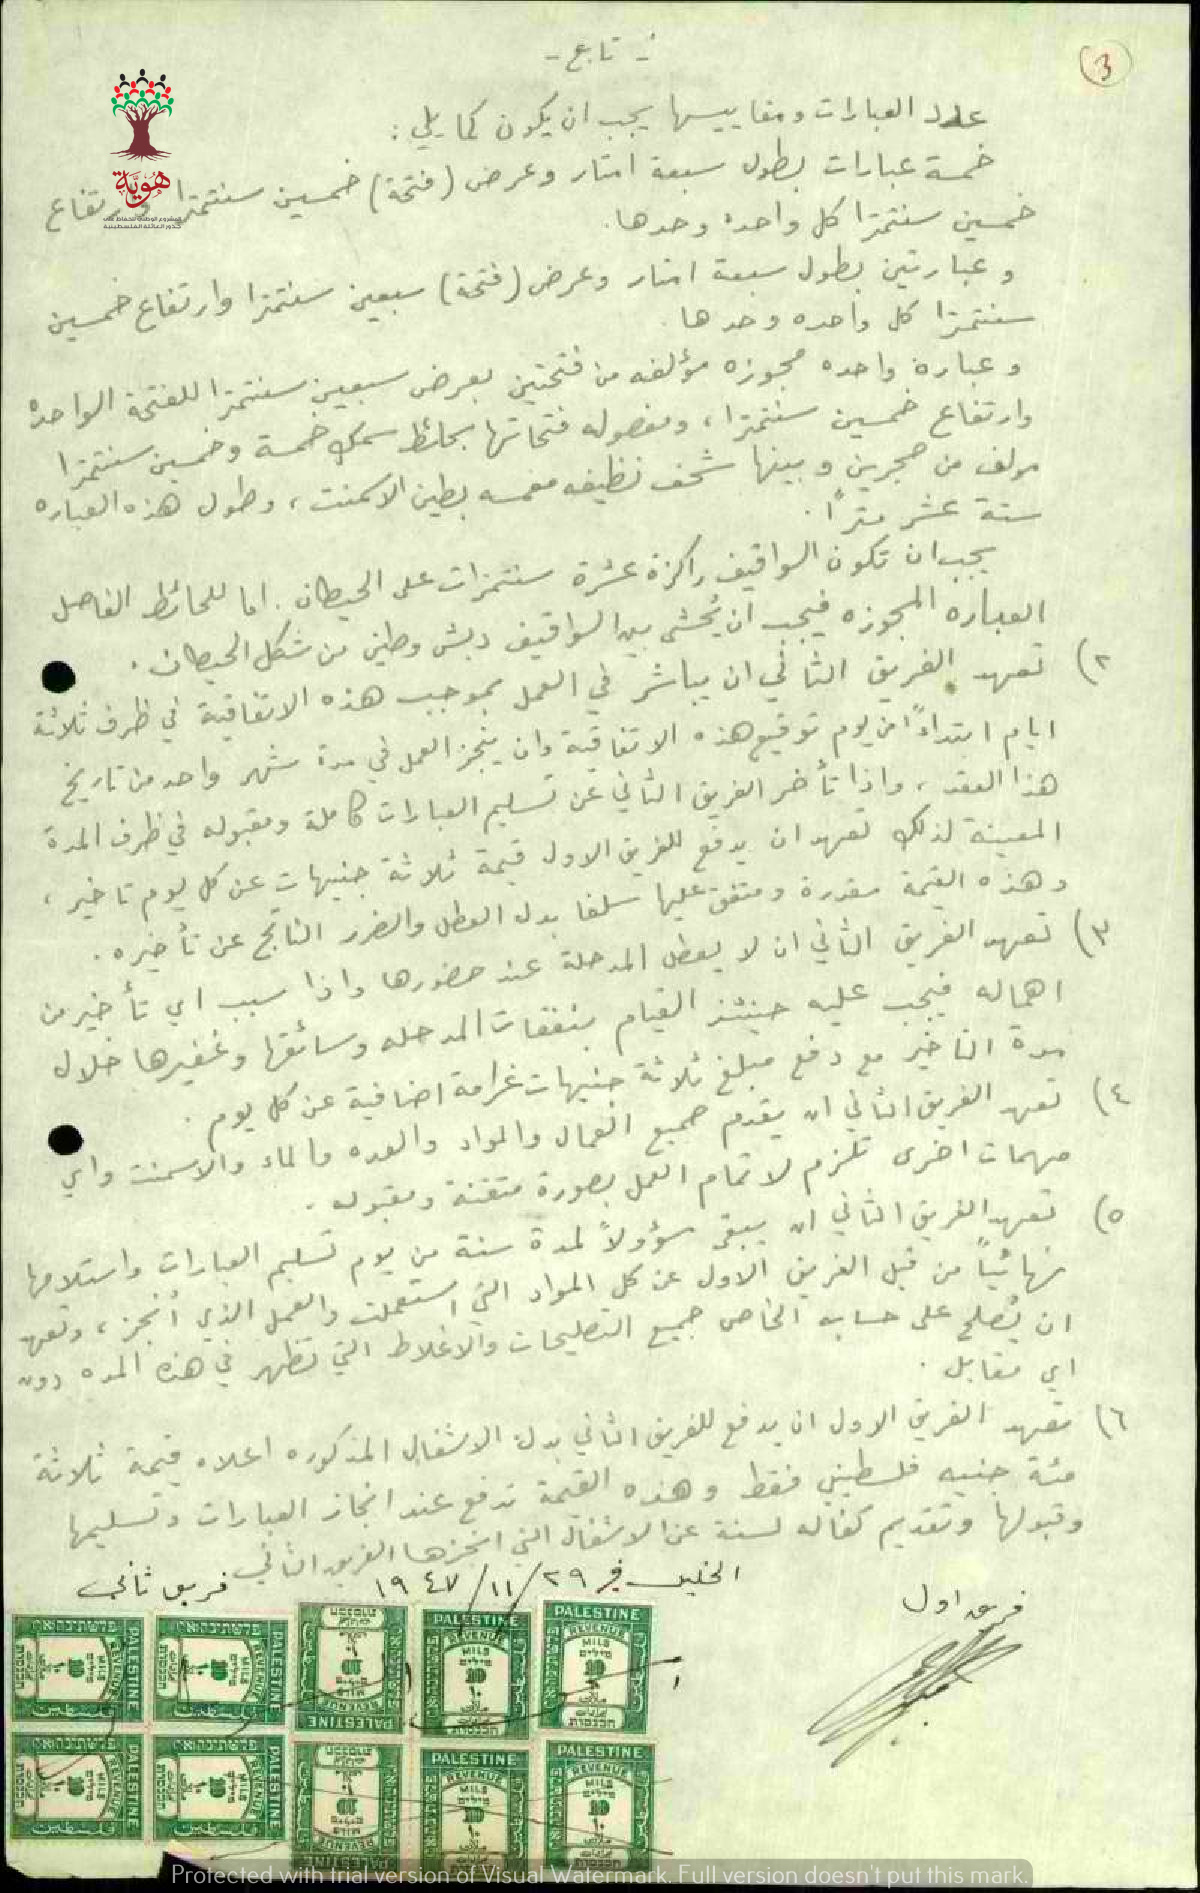 3
- تابع -
عدد العبارات ومقاييسها يجب ان يكون كما يلي :
خمسة عبارات بطول سبعة امتار وعرض (فتحة) خمسين سنتمترا وارتفاع
خمسين سنتمترا كل واحدة وحدها .
وعبارتين بطول سبعة امتار وعرض (فتحة) سبعين سنتمترا وارتفاع خمسين
سنتمترا كل واحده وحدها .
وعبارة واحده مجوزه مؤلفه من فتحتين بعرض سبعين سنتمترا للفتحة الواحده
وارتفاع خمسين سنتمترا ، ومفصوله فتحاتها بحائط سمك خمسة وخمسين سنتمترا
مولف من حجرين وبينها شحف نظيفه مغمسه بطين الاسمنت ، وطول هذه العباره
ستة عشر مترًا .
يجب ان تكون السواقيف راكزة عشرة سنتمترات على الحيطان . اما للحائط الفاصل
العباره المجوزه فيجب ان يُحشى بين السواقيف دبش وطين من شكل الحيطان .
٢) تعهد الفريق الثاني ان يباشر في العمل بموجب هذه الاتفاقية في ظرف ثلاثة
ايام ابتداءً من يوم توقيع هذه الاتفاقية وان ينجز العمل في مدة شهر واحد من تاريخ
هذا العقد ، واذا تأخر الفريق الثاني عن تسليم العبارات كاملة ومقبوله في ظرف المدة
المعينة لذلك تعهد ان يدفع للفريق الاول قيمة ثلاثة جنيهات عن كل يوم تاخير ،
وهذه القيمة مقدرة ومتفق عليها سلفا بدل العطل والضرر الناتج عن تأخيره .
٣) تعهد الفريق الثاني ان لا يعطل المدحلة عند حضورها واذا سبب اي تأخير من
اهماله فيجب عليه حينئذ القيام بنفقات المدحله وسائقها وغفيرها خلال
مدة التاخير مع دفع مبلغ ثلاثة جنيهات غرامة اضافية عن كل يوم .
٤) تعهد الفريق الثاني ان يقدم جميع العمال والمواد والعده والماء والاسمنت واي
مهمات اخرى تلزم لاتمام العمل بصورة متقنة ومقبوله .
٥) تعهد الفريق الثاني ان يبقى مسؤولاً لمدة سنة من يوم تسليم العبارات واستلامها
نهائيًا من قبل الفريق الاول عن كل المواد التي استعملت والعمل الذي أنجز ، وتعهد
ان يُصلح على حسابه الخاص جميع التصليحات والاغلاط التي تظهر في هذه المده دون
اي مقابل .
٦) تعهد الفريق الاول ان يدفع للفريق الثاني بدل الاشغال المذكوره اعلاه قيمة ثلاثة
مئة جنيه فلسطيني فقط وهذه القيمة تدفع عند انجاز العبارات وتسليمها
وقبولها وتقديم كفاله لسنة عن الاشغال التي انجزها الفريق الثاني
الخليل في ٢٩/١١/١٩٤٧
فريق اول
فريق ثاني
هويّة
المشروع الوطني للحفاظ على
جذور العائلة الفلسطينية
PALESTINE
REVENUE
MILS
10
١٠
فلسطين
Protected with trial version of Visual Watermark. Full version doesn't put this mark.